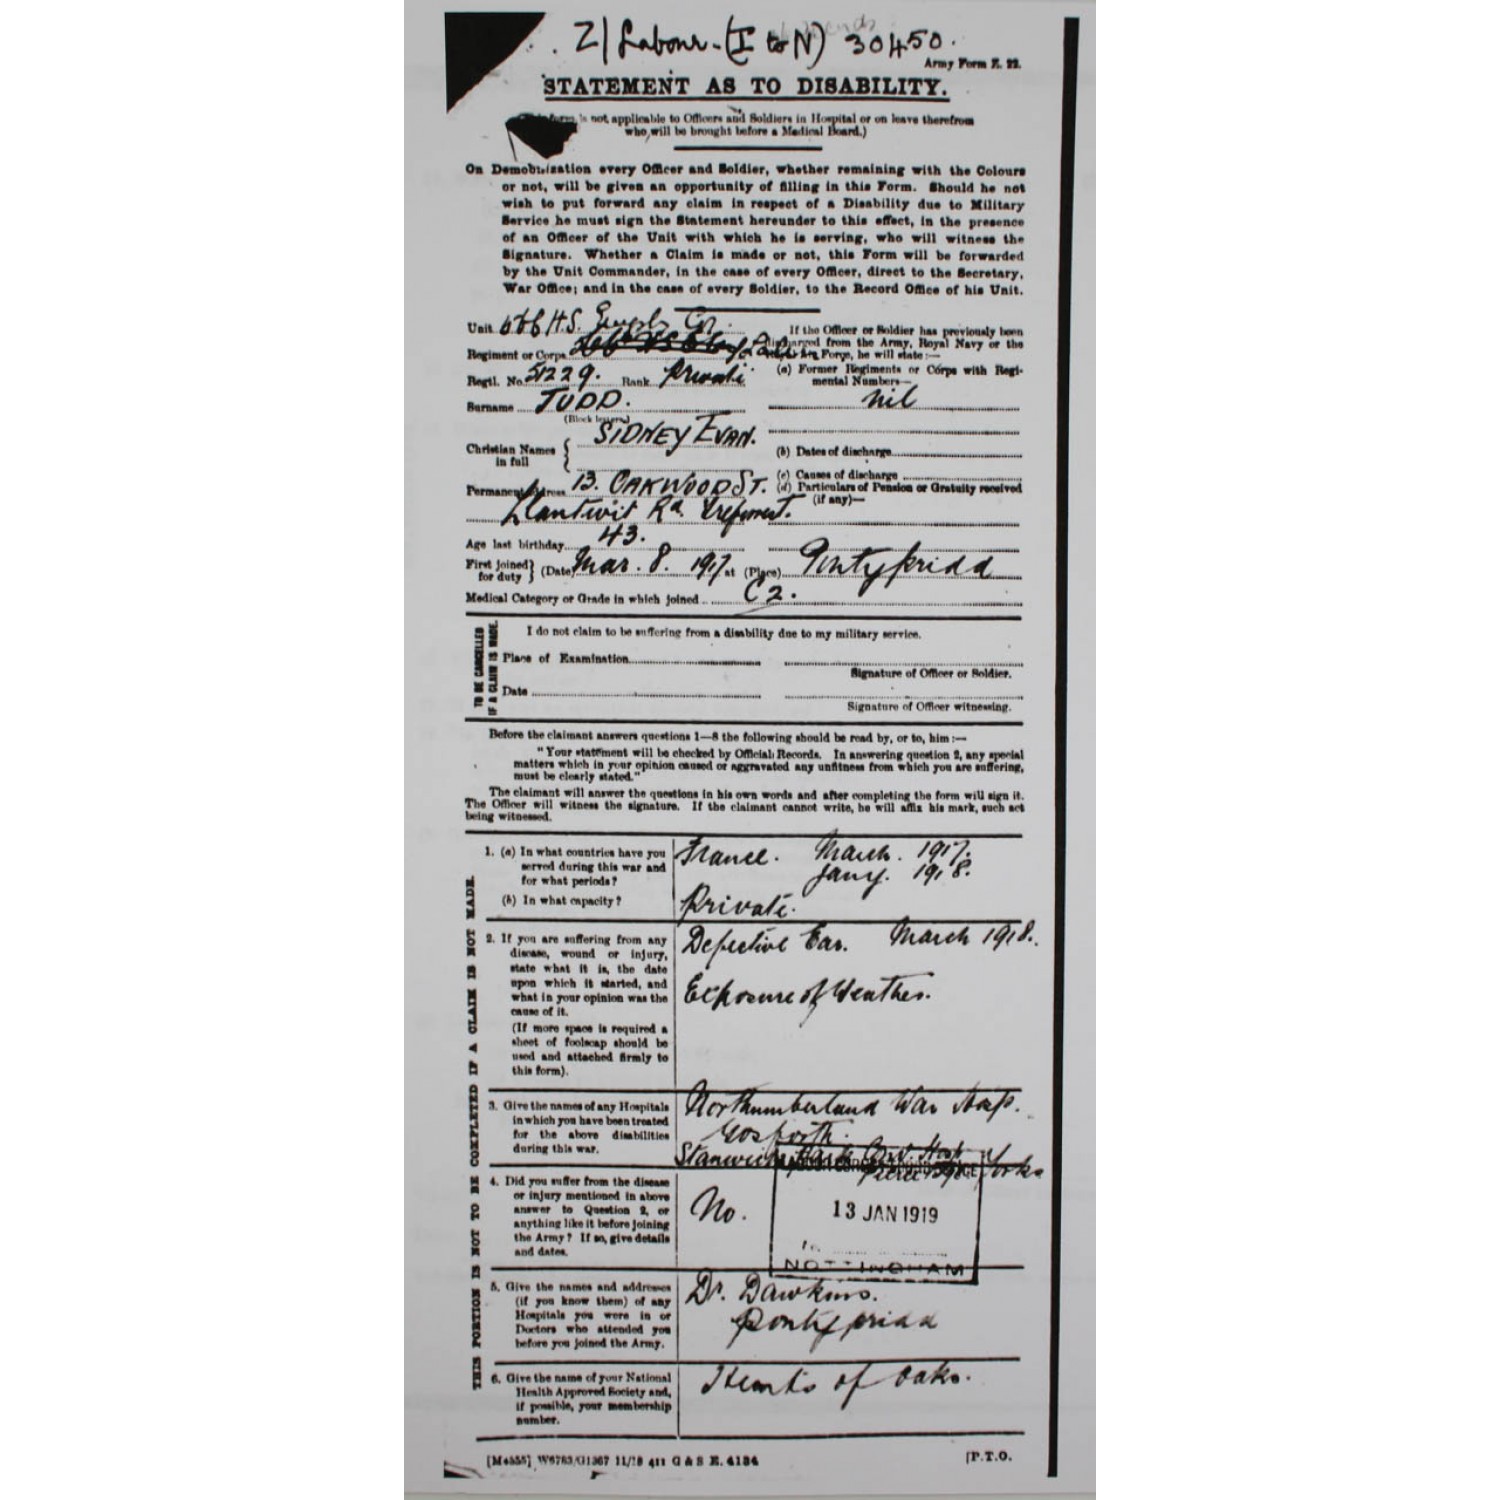 Z/ Labour-(I to N) 30450.
Army Form Z. 22.
STATEMENT AS TO DISABILITY.
is not applicable to Officers and Soldiers in Hospital or on leave therefrom
who will be brought before a Medical Board.)
On Demobilization every Officer and Soldier, whether remaining with the Colours
or not, will be given an opportunity of filling in this Form. Should he not
wish to put forward any claim in respect of a Disability due to Military
Service he must sign the Statement hereunder to this effect, in the presence
of an Officer of the Unit with which he is serving, who will witness the
Signature. Whether a Claim is made or not, this Form will be forwarded
by the Unit Commander, in the case of every Officer, direct to the Secretary,
War Office; and in the case of every Soldier, to the Record Office of his Unit.
Unit H.S.
Regiment or Corps
Regtl. No. 51229. Rank Private
Surname JUDD.
(Block letters)
Christian Names
in full
SIDNEY EVAN.
Permanent Address 13. OAKWOOD ST.
Llantwit Rd. Treforest.
Age last birthday 43.
If the Officer or Soldier has previously been
discharged from the Army, Royal Navy or the
Air Force, he will state:—
(a) Former Regiments or Corps with Regi-
mental Numbers—
nil
(b) Dates of discharge
(c) Causes of discharge
(d) Particulars of Pension or Gratuity received
(if any)—
First joined
for duty (Date) Mar. 8. 1917 at (Place) Pontypridd
Medical Category or Grade in which joined C2.
TO BE CANCELLED
IF A CLAIM IS MADE.
I do not claim to be suffering from a disability due to my military service.
Place of Examination
Signature of Officer or Soldier.
Date
Signature of Officer witnessing.
Before the claimant answers questions 1—8 the following should be read by, or to, him:—
"Your statement will be checked by Official Records. In answering question 2, any special
matters which in your opinion caused or aggravated any unfitness from which you are suffering,
must be clearly stated."
The claimant will answer the questions in his own words and after completing the form will sign it.
The Officer will witness the signature. If the claimant cannot write, he will affix his mark, such act
being witnessed.
THIS PORTION IS NOT TO BE COMPLETED IF A CLAIM IS NOT MADE.
1. (a) In what countries have you
served during this war and
for what periods?
France. March. 1917.
Jany. 1918.
(b) In what capacity?
Private.
2. If you are suffering from any
disease, wound or injury,
state what it is, the date
upon which it started, and
what in your opinion was the
cause of it.
(If more space is required a
sheet of foolscap should be
used and attached firmly to
this form).
Defective Ear. March 1918.
Exposure of Weather.
3. Give the names of any Hospitals
in which you have been treated
for the above disabilities
during this war.
Northumberland War Hosp.
Gosforth.
Stanwick Park Hosp Yorks
4. Did you suffer from the disease
or injury mentioned in above
answer to Question 2, or
anything like it before joining
the Army? If so, give details
and dates.
No.
13 JAN 1919
NOTTINGHAM
5. Give the names and addresses
(if you know them) of any
Hospitals you were in or
Doctors who attended you
before you joined the Army.
Dr. Dawkins.
Pontypridd
6. Give the name of your National
Health Approved Society and,
if possible, your membership
number.
Hearts of Oaks.
[M4555] W6763/G1367 11/18 411 G & S E. 4134
[P.T.O.